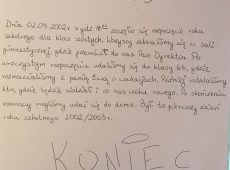 Dnia 02.09.2002r o godz. 9⁰⁰ zaczęło się rozpoczęcie roku
szkolnego dla klas szóstych. Wszyscy zebraliśmy się w sali
gimnastycznej, gdzie przemówił do nas Pan Dyrektor. Po
uroczystym rozpoczęciu udaliśmy się do klasy 6b, gdzie
rozmawialiśmy z panią Ewą o wakacjach. Później ustalaliśmy
kto, gdzie będzie siedział i co nas czeka nowego. Po skończeniu
rozmowy mogliśmy udać się do domu. Był to pierwszy dzień
roku szkolnego 2002/2003r.
KONIEC